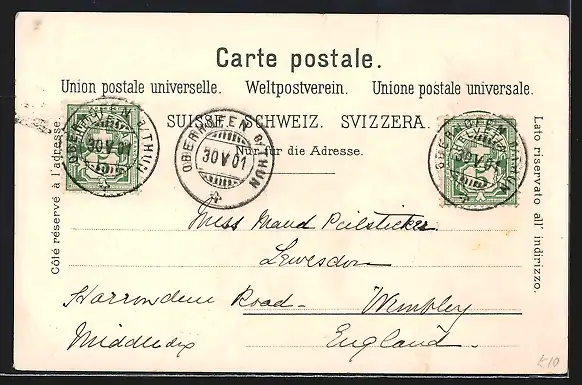 Carte postale.
Union postale universelle. Weltpostverein. Unione postale universale.
SUISSE. SCHWEIZ. SVIZZERA.
Nur für die Adresse.
Côté réservé à l'adresse.
Lato riservato all' indirizzo.
OBERHOFEN B/THUN
30 V 01
OBERHOFEN B/THUN
30 V 01
OBERHOFEN B/THUN
30 V 01
Miss Maud Peilsticker
Lewesdon
Harrowdene Road - Wembley
Middlesex England.
K10